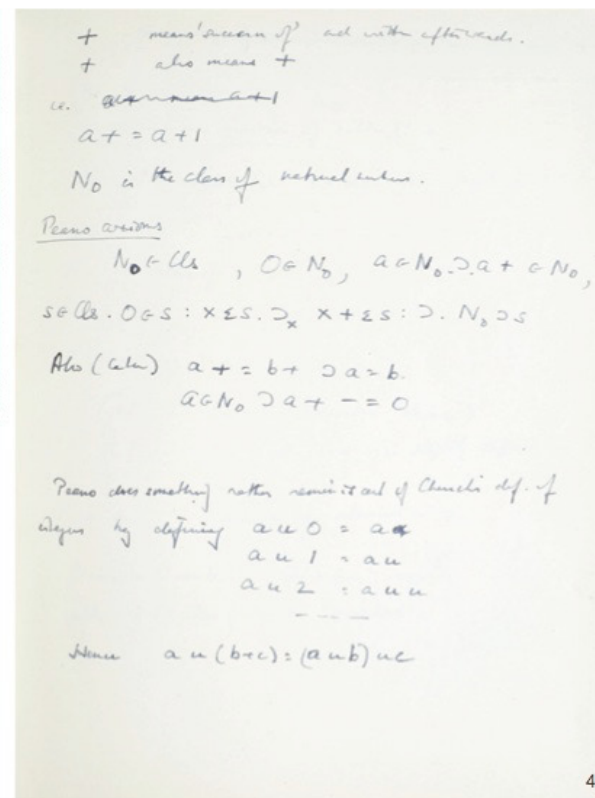 + means 'successor of' and written afterwards.
+ also means +
i.e. a+ means a+1
a+ = a+1
N₀ is the class of natural numbers.
Peano axioms
N₀ ε Cls , 0 ε N₀, a ε N₀ .⊃. a+ ε N₀,
s ε Cls . 0 ε s : x ε s .⊃ₓ x+ ε s : ⊃. N₀ ⊃ s
Also (later) a+ = b+ ⊃ a = b.
a ε N₀ ⊃ a+ - = 0
Peano does something rather reminiscent of Church's def. of
integers by defining a u 0 = a
a u 1 = a u
a u 2 = a u u
- - - -
Hence a u (b+c) = (a u b) u c
4